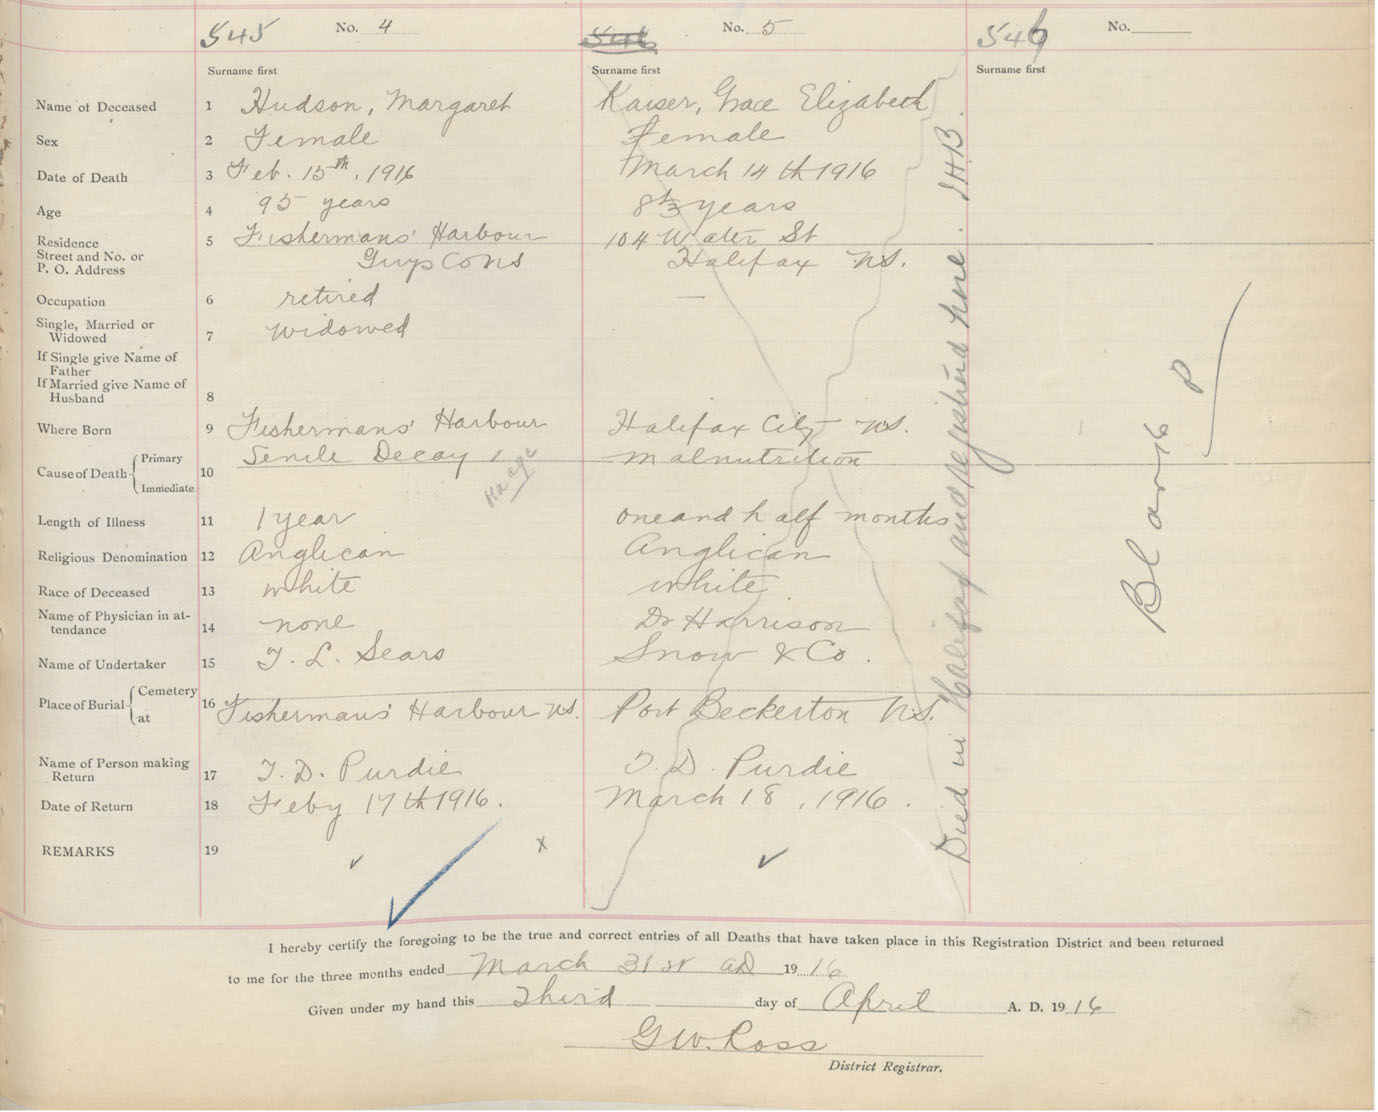 545 No. 4
546 No. 5
546 No.
Surname first Surname first Surname first
Name of Deceased 1 Hudson, Margaret Kaiser, Grace Elizabeth
Sex 2 Female Female
Date of Death 3 Feb. 15th, 1916 March 14th 1916
Age 4 95 years years
Residence 5 Fishermans' Harbour 104 Water St
Street and No. or
P. O. Address Guys Co NS Halifax NS.
Occupation 6 retired —
Single, Married or
Widowed 7 widowed
If Single give Name of
Father
If Married give Name of
Husband 8
Where Born 9 Fishermans' Harbour Halifax City NS.
Cause of Death Primary Senile Decay malnutrition
10
Immediate
age
Length of Illness 11 1 year one and half months
Religious Denomination 12 Anglican Anglican
Race of Deceased 13 white white
Name of Physician in at-
tendance 14 none Dr Harrison
Name of Undertaker 15 T. L. Sears Snow & Co.
Place of Burial Cemetery
at 16 Fishermans' Harbour NS. Port Beckerton NS.
Name of Person making
Return 17 T. D. Purdie T. D. Purdie
Date of Return 18 Feby 17th 1916. March 18, 1916.
REMARKS 19
x
Died in Halifax and registered here. J.H.B.
Blank
I hereby certify the foregoing to be the true and correct entries of all Deaths that have taken place in this Registration District and been returned
to me for the three months ended March 31st AD 1916
Given under my hand this Third day of April A. D. 1916
G W. Ross
District Registrar.